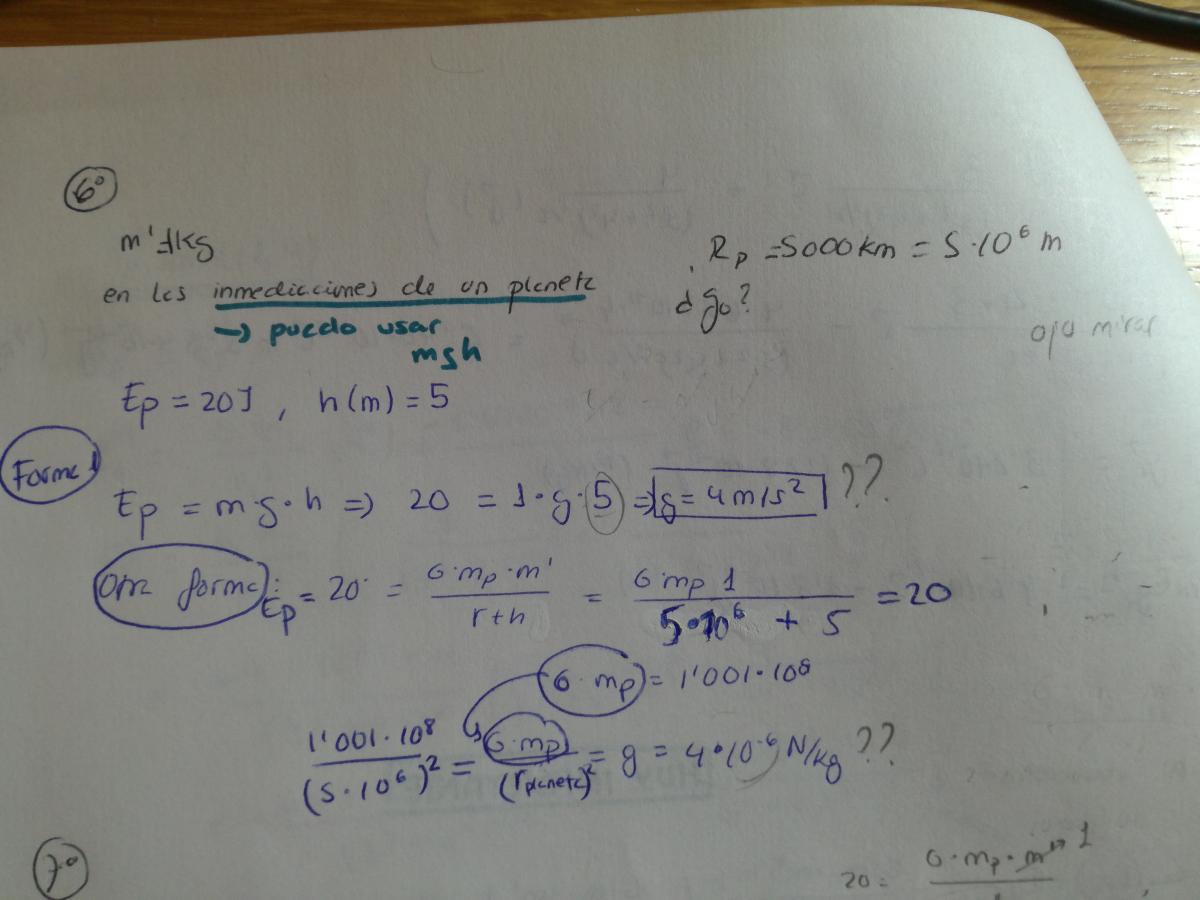 6º
m'=1kg
Rp = 5000km = 5·10⁶ m
en las inmediaciones de un planeta
¿g₀?
→ puedo usar
mgh
ojo mirar
Ep = 20J , h(m) = 5
Forma 1
Ep = m·g·h => 20 = 1·g·5 => g = 4m/s² ??
Otra forma: Ep = 20 = G·mp·m' / r+h = G·mp 1 / 5·10⁶ + 5 = 20
G·mp = 1'001·10⁸
1'001·10⁸ / (5·10⁶)² = G·mp / (rplaneta)² = g = 4·10⁻⁶ N/kg ??
7º
20 = G·mp·m' 1